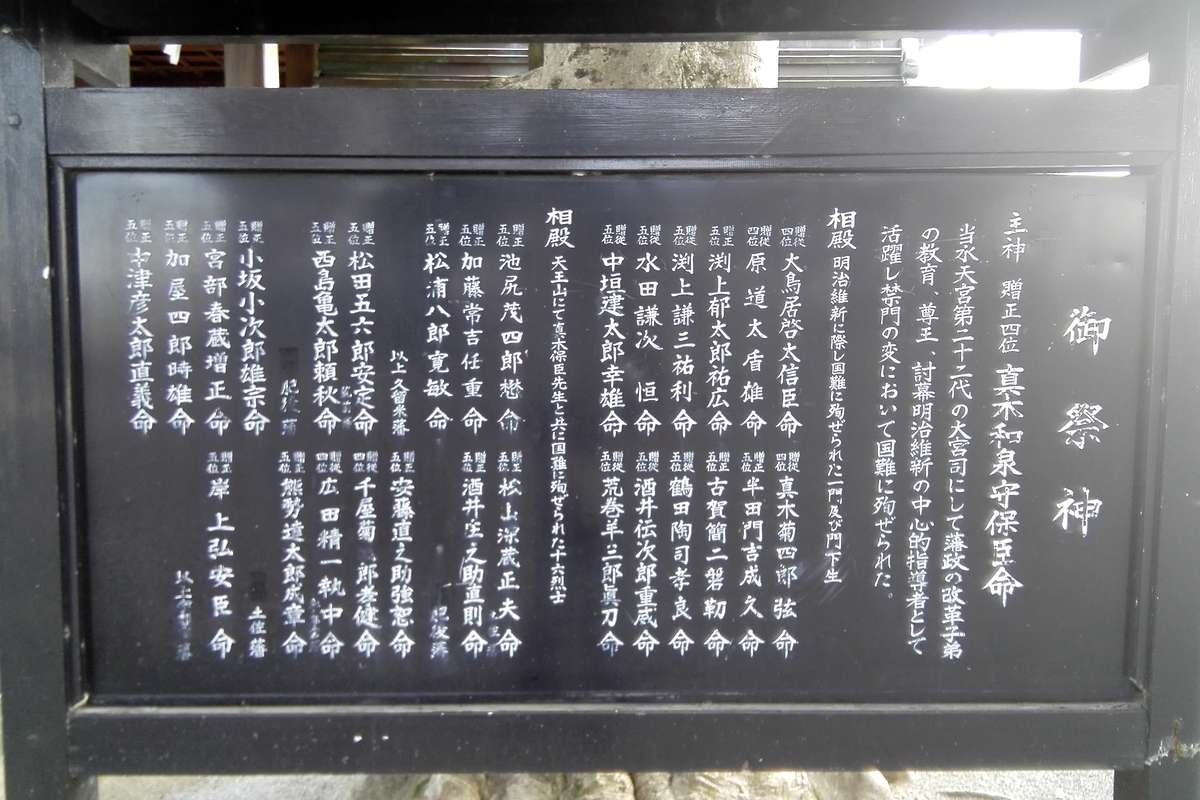 御祭神
主神 贈正四位 真木和泉守保臣命
当水天宮第二十二代の大宮司にして藩政の改革子弟
の教育、尊王、討幕明治維新の中心的指導者として
活躍し禁門の変において国難に殉ぜられた。
相殿 明治維新に際し国難に殉ぜられた一門及び門下生
贈従四位 大鳥居啓太信臣命 贈従四位 真木菊四郎 弦命
贈従四位 原 道太盾雄命 贈正五位 半田門吉成久命
贈正五位 渕上郁太郎祐広命 贈正五位 古賀簡二磐勒命
贈従五位 渕上謙三祐利命 贈従五位 鶴田陶司孝良命
贈従五位 水田謙次 恒命 贈正五位 酒井伝次郎重威命
贈従五位 中垣建太郎幸雄命 贈従五位 荒巻羊三郎眞刀命
相殿 天王山にて真木保臣先生と共に国難に殉ぜられた十六烈士
贈正五位 池尻茂四郎懋命 贈正五位 松山深蔵正夫命
贈正五位 加藤常吉任重命 贈正五位 酒井庄之助直則命
贈正五位 松浦八郎寛敏命 肥後藩
以上久留米藩 贈正五位 安藤真之助強恕命
贈正五位 松田五六郎安定命 贈従四位 千屋菊 郎孝健命
贈正五位 西島亀太郎頼秋命 贈従四位 広田精一執中命
肥後藩 贈正五位 熊勢道太郎成章命
贈正五位 小坂小次郎雄宗命 土佐藩
贈正五位 宮部春蔵増正命 贈正五位 岸上弘安臣命
贈正五位 加屋四郎時雄命 以上
贈正五位 津彦太郎直義命